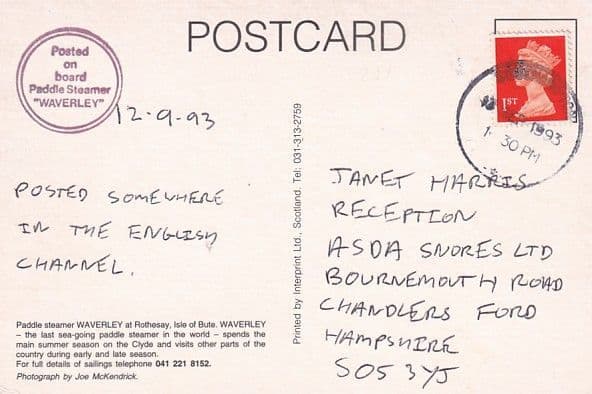 POSTCARD
Posted
on
board
Paddle Steamer
"WAVERLEY"
12-9-93
POSTED SOMEWHERE
IN THE ENGLISH
CHANNEL.
Paddle steamer WAVERLEY at Rothesay, Isle of Bute. WAVERLEY
– the last sea-going paddle steamer in the world – spends the
main summer season on the Clyde and visits other parts of the
country during early and late season.
For full details of sailings telephone 041 221 8152.
Photograph by Joe McKendrick.
Printed by Interprint Ltd., Scotland. Tel: 031-313-2759
1ST
1993
30 PM
JANET HARRIS
RECEPTION
ASDA SNORES LTD
BOURNEMOUTH ROAD
CHANDLERS FORD
HAMPSHIRE
SO5 3YJ